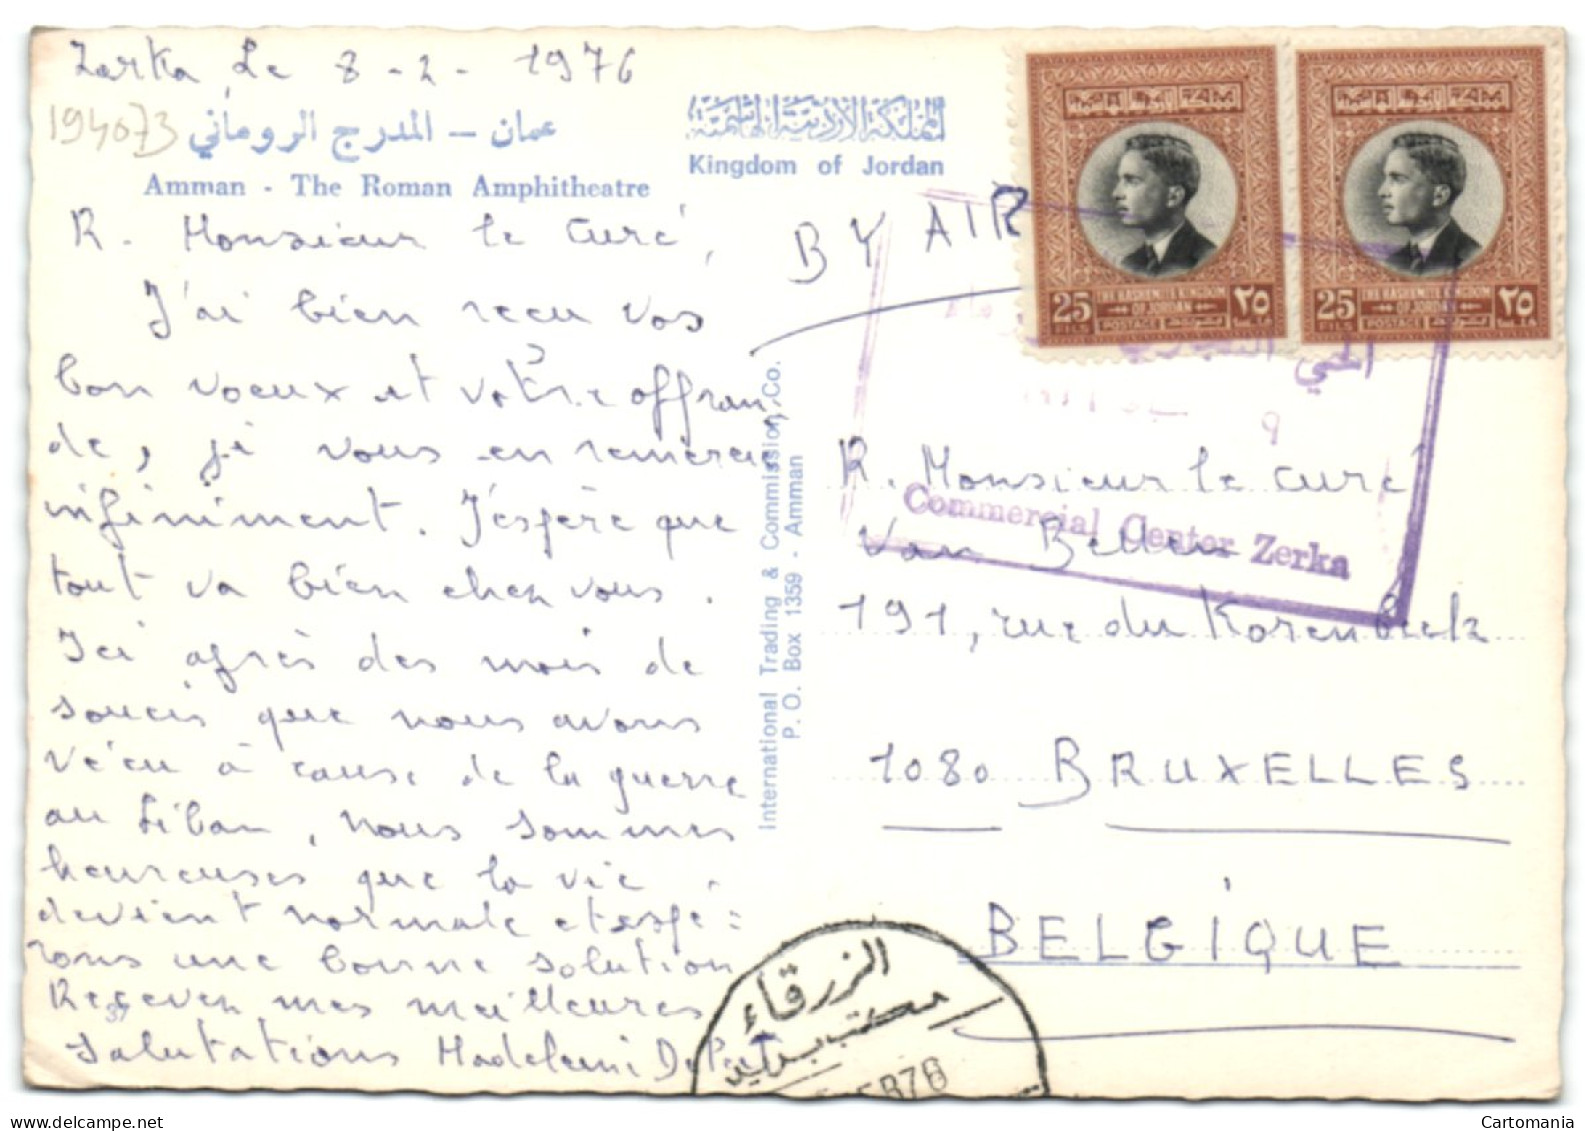 Zerka Le 8-2-1976
194073
عمان – المدرج الروماني
Amman - The Roman Amphitheatre
المملكة الاردنية الهاشمية
Kingdom of Jordan
R. Monsieur le Curé,
J'ai bien reçu vos
bon voeux et vôtre offran-
de, je vous en remercie
infiniment. J'éspère que
tout va bien chez vous.
Ici après des mois de
soucis que nous avons
vécu à cause de la guerre
au Liban, nous sommes
heureuses que la vie
devient normale et espé=
rons une bonne solution
Recevez mes meilleures
salutations Madeleine
International Trading & Commission, Co.
P. O. Box 1359 - Amman
BY AIR
25
FILS
THE HASHEMITE KINGDOM
OF JORDAN
POSTAGE
٢٥
25
FILS
THE HASHEMITE KINGDOM
OF JORDAN
POSTAGE
٢٥
الحي التجاري
Commercial Center Zerka
R. Monsieur le Curé
Van Bellen
191, rue du Korenbeek
1080 BRUXELLES
BELGIQUE
الزرقاء
مكتب بريد
Cartomania